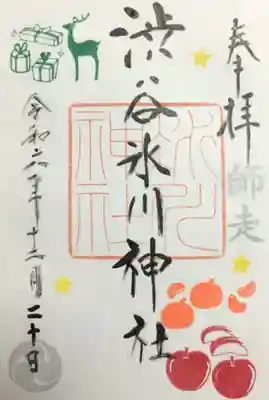 奉拝
師走
渋谷氷川神社
氷川
神社
令和六年十二月二十日